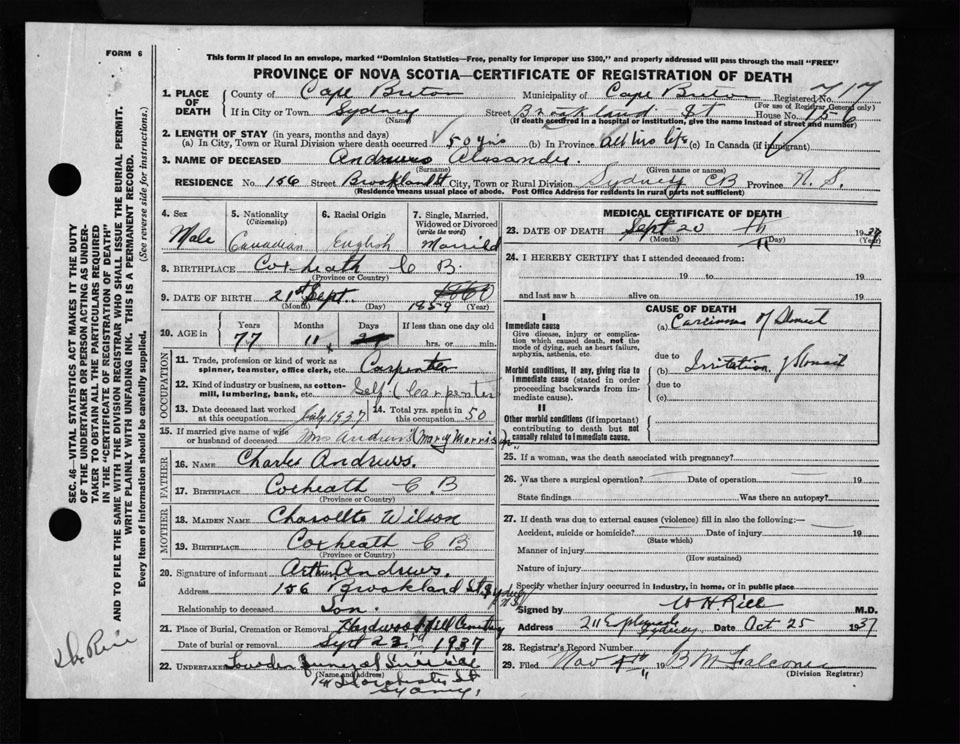 FORM 6
This form if placed in an envelope, marked "Dominion Statistics—Free, penalty for improper use $300," and properly addressed will pass through the mail "FREE"
PROVINCE OF NOVA SCOTIA—CERTIFICATE OF REGISTRATION OF DEATH
1. PLACE OF DEATH County of Cape Breton Municipality of Cape Breton Registered No. 717
(For use of Registrar General only)
If in City or Town Sydney Street Brookland St House No. 156
(Name) (If death occurred in a hospital or institution, give the name instead of street and number)
2. LENGTH OF STAY (in years, months and days)
(a) In City, Town or Rural Division where death occurred 50 yrs (b) In Province all his life (c) In Canada (if immigrant)
3. NAME OF DECEASED Andrews Alexander
(Surname) (Given name or names)
RESIDENCE No. 156 Street Brookland St City, Town or Rural Division Sydney CB Province N. S.
(Residence means usual place of abode. Post Office Address for residents in rural parts not sufficient)
4. Sex Male
5. Nationality (Citizenship) Canadian
6. Racial Origin English
7. Single, Married, Widowed or Divorced (write the word) Married
8. BIRTHPLACE Coxheath C B
(Province or Country)
9. DATE OF BIRTH 21st Sept. 1859 1860
(Month) (Day) (Year)
10. AGE in Years 77 Months 11 Days If less than one day hrs. or min.
OCCUPATION
11. Trade, profession or kind of work as spinner, teamster, office clerk, etc. Carpenter
12. Kind of industry or business, as cotton-mill, lumbering, bank, etc. Self (Carpenter
13. Date deceased last worked at this occupation 1937
14. Total yrs. spent in this occupation 50
15. If married give name of wife or husband of deceased Mrs Andrews (Mary Morrison
FATHER
16. NAME Charles Andrews.
17. BIRTHPLACE Coxheath C. B
(Province or Country)
MOTHER
18. MAIDEN NAME Charollte Wilson
19. BIRTHPLACE Coxheath C B
(Province or Country)
20. Signature of informant Arthur Andrews.
Address 156 Brookland St Sydney N S
Relationship to deceased Son.
21. Place of Burial, Cremation or Removal Hardwood Hill Cemetery
Date of burial or removal Sept 22nd 1937
22. UNDERTAKER Lowden Funeral Service
(Name and address) Dorchester St
Sydney.
MEDICAL CERTIFICATE OF DEATH
23. DATE OF DEATH Sept 20 th 1937
(Month) (Day) (Year)
24. I HEREBY CERTIFY that I attended deceased from:
19 to 19
and last saw h alive on 19
CAUSE OF DEATH
I
Immediate cause
Give disease, injury or complication which caused death, not the mode of dying, such as heart failure, asphyxia, asthenia, etc.
(a) Carcinoma of Stomach
due to
Morbid conditions, if any, giving rise to immediate cause (stated in order proceeding backwards from immediate cause).
(b) Irritation of Stomach
due to
(c)
II
Other morbid conditions (if important) contributing to death but not causally related to immediate cause.
25. If a woman, was the death associated with pregnancy?
26. Was there a surgical operation? Date of operation 19
State findings Was there an autopsy?
27. If death was due to external causes (violence) fill in also the following:—
Accident, suicide or homicide? Date of injury 19
(State which)
Manner of injury
(How sustained)
Nature of injury
Specify whether injury occurred in industry, in home, or in public place
Signed by W H Rice M.D.
Address 211 Esplanade Sydney Date Oct 25 1937
28. Registrar's Record Number
29. Filed Nov 4th 19 B M Falconer
(Division Registrar)
SEC. 46—VITAL STATISTICS ACT MAKES IT THE DUTY
OF THE UNDERTAKER OR PERSON ACTING AS UNDERTAKER
TO OBTAIN ALL THE PARTICULARS REQUIRED
IN THE "CERTIFICATE OF REGISTRATION OF DEATH"
AND TO FILE THE SAME WITH THE DIVISION REGISTRAR WHO SHALL ISSUE THE BURIAL PERMIT.
WRITE PLAINLY WITH UNFADING INK. THIS IS A PERMANENT RECORD.
Every item of information should be carefully supplied. (See reverse side for instructions.)
Rice